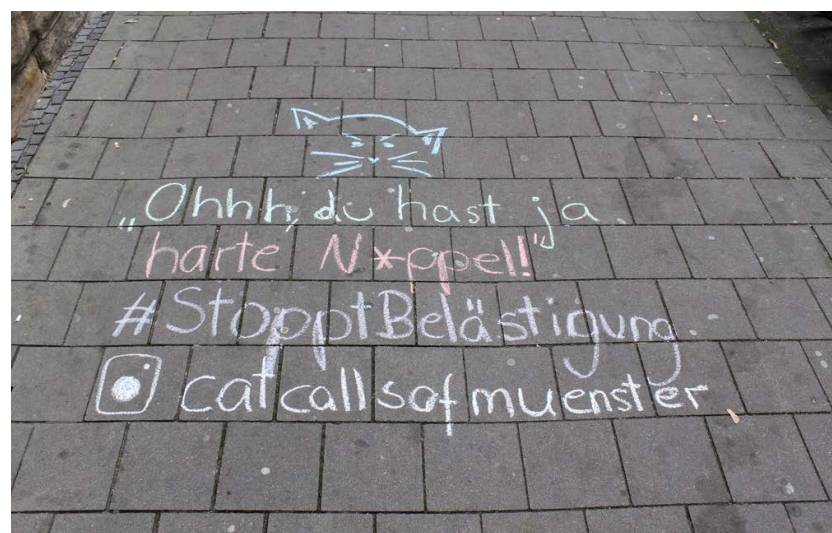 „Ohhh, du hast ja
harte N*ppel!"
#StopptBelästigung
catcallsofmuenster